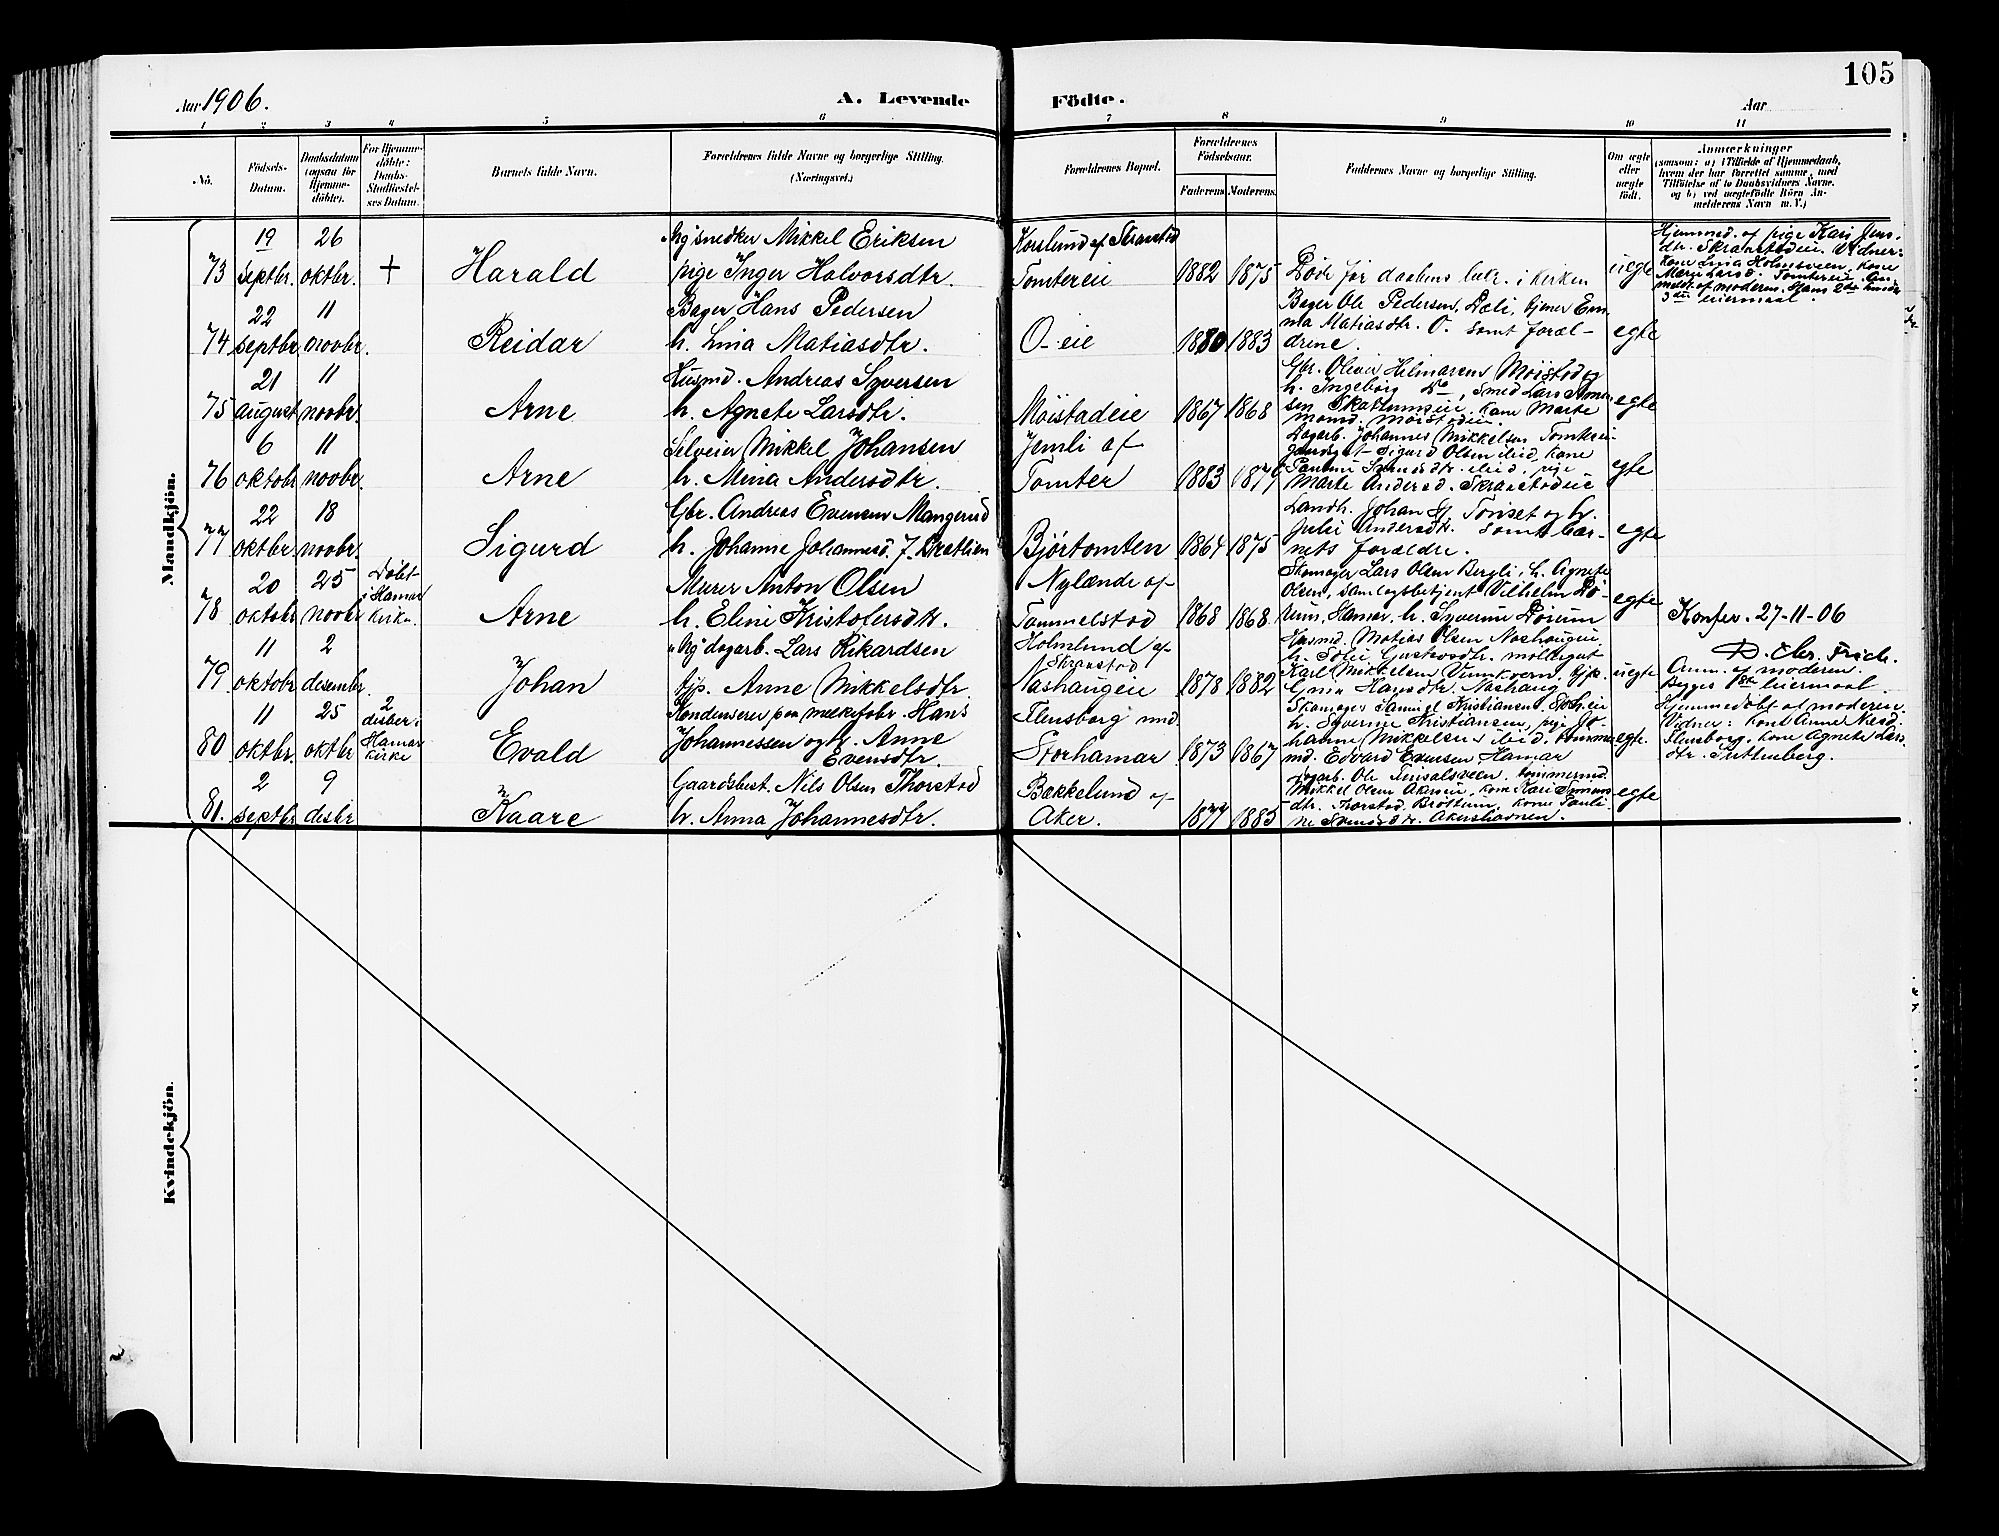 105
Aar 1906.
A. Levende Födte.
Aar
1 2 3 4 5 6 7 8 9 10 11
No.
Födsels-
Datum.
Daabsdatum
(ogsaa for
Hjemme-
döbte).
For Hjemme-
döbte:
Daabs-
Stadfæstel-
ses Datum.
Barnets fulde Navn.
Forældrenes fulde Navne og borgerlige Stilling.
(Næringsvei.)
Forældrenes Bopæl.
Forældrenes
Födselsaar.
Faderens. Moderens.
Faddernes Navne og borgerlige Stilling.
Om ægte
eller
uægte
födt.
Anmærkninger
(saasom: a) i Tilfælde af Hjemmedaab,
hvem der har forrettet samme, med
Tilföielse af to Daabsvidners Navne.
og b) ved uægtefödte Börn An-
melderens Navn m. V.)
Mandkjön.
73
19
septbr.
26
oktbr.
+
Harald
Ng snedker Mikkel Eriksen
pige Inger Halvorsdtr.
Korslund af Skranstad
Tomtereie
1882 1875
Døde før daabens bekr. i kirken
uegte
Hjemmed. af pige Kari Jens
dtr. Skranstadeie. Vidner:
kone Lina Holmsveen. kone
Mari Larsd. Tomtereie. An
meldt af moderen. Hans 2det hendes
3die leiermaal.
74
22
septbr.
11
novbr.
Reidar
Bager Hans Pedersen
h. Lina Matiasdtr.
O-eie
1880 1883
Bager Ole Pedersen, Dæli, tjener Em
ma Matiasdtr. O. samt foræl-
drene.
egte
75
21
august
11
novbr.
Arne
Husmd. Andreas Syversen
h. Agnete Larsdtr.
Moistadeie
1867 1868
Gbr. Oliver Hilmarsen Moistad og
h. Ingeborg Do, Smed Lars
sen Skattumseie. kone Marte
Moistadeie.
egte
76
6
oktobr
11
novbr.
Arne
Selveier Mikkel Johansen
h. Mina Andersdtr.
Jemli af
Tomter
1883 1879
Dagarb. Johannes Mikkelsen Tomterei
Sigurd Olsen ibid, kone
Pauline Svendsdtr. ibid, pige
Marte Andersd. Skranstadeie
egte
77
22
oktbr.
18
novbr.
Sigurd
Gbr. Andreas Evensen Mangerud
h. Johanne Johannesd. f. Brattlien
Bjørtomten
1864 1875
Landh. Johan Tonset og h.
Julie Andersdtr. samt bar-
nets forældre.
egte
78
20
oktobr.
25
novbr
Døbt
i Hamar
kirke.
Arne
Murer Anton Olsen
h. Eline Kristofersdtr.
Nylænde af
Tommelstad
1868 1868.
Skomager Lars Olsen Bergli, h. Agnete
Olsen, samlagsbetjent Vilhelm Dø-
rum, Hamar. h. Syverine Dørum
egte
Konfer. 27-11-06
D. Chr. Frich.
79
11
oktobr
2
desembr.
Johan
Ng dagarb. Lars Rikardsen
tjp. Anne Mikkelsdtr.
Holmlund af
Skranstad
Nashaugeie
1878 1882
Husmd. Matias Olsen Nashaugeie
h. Sofie Gustavsdtr. møllergut
Karl Mikkelsen Vannkvern. tjp.
Gina Hansdtr. Nashaug
uegte
Anm. af moderen.
Begges 1ste leiermaal.
80
11
oktbr.
25
oktbr
2
desber i
Hamar
kirke
Evald
Kondenserer paa melkefabr. Hans
Johannessen og h. Anne
Evensdtr.
Flensborg und.
Storhamar
1873 1867
Skomager Samuel Kristiansen
h. Syverine Kristiansen, pige Jo-
hanne Mikkelsen ibid. tømmer
md. Edvard Evensen Hamar
egte.
Hjemmedøbt af moderen
Vidner: kone Anne Næsd.
Flensborg. kone Agnete Lars
dtr. Guttenberg.
81.
2
septbr
9
desbr
Kaare
Gaardsbest. Nils Olsen Thorstad
h. Anna Johannesdtr.
Bækkelund af
Aker.
1877 1885
Dagarb. Ole Finsalsveen. tømmermd.
Mikkel Olsen Akerseie, kone Kari Simens
dtr. Thorstad. Brøttum. kone Pauli-
ne Svendsdtr. Akershavnen.
egte
Kvindekjön.